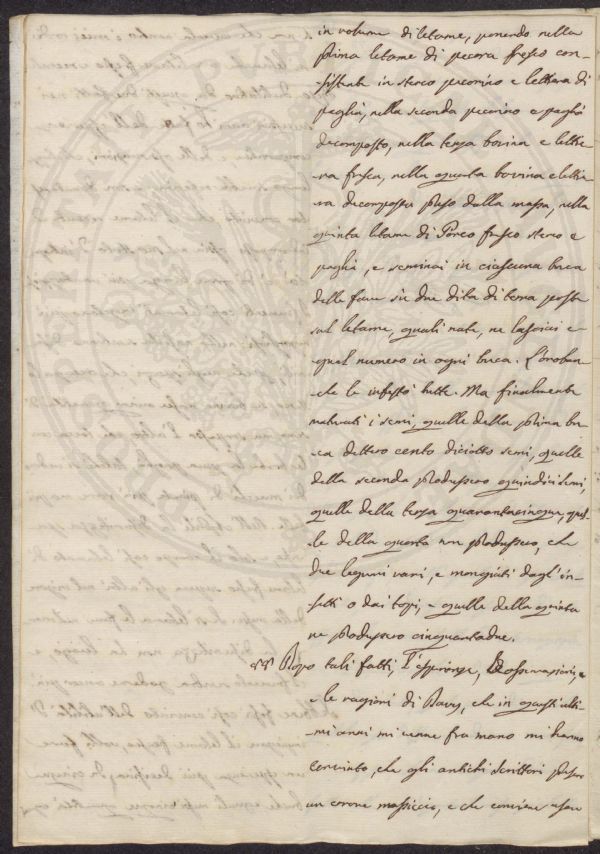 in volume di letame, ponendo nella
prima letame di pecora fresco con-
sistente in sterco pecorino e lettiera di
paglia, nella seconda pecorino e paglia
decomposto, nella terza bovina e lettie-
ra fresca, nella quarta bovina e lettie-
ra decomposta preso dalla massa, nella
quinta letame di Porco fresco sterco e
paglia, e seminai in ciascuna buca
delle fave sù due dita di terra posta
sul letame, quali nate, ne lasciai e-
gual numero in ogni buca. L'oroban-
che le infestò tutte. Ma finalmente
maturati i semi, quelle della prima bu-
ca dettero cento diciotto semi, quelle
della seconda produssero quindici semi,
quelle della terza quarantacinque, quel-
le della quarta non produssero, che
due legumi vani, e mangiati dagl'in-
setti o dai topi, e quelle della quinta
ne produssero cinquantadue.
Dopo tali fatti, l'esperienze, le osservazioni, e
e le ragioni di Davy, che in questi ulti-
mi anni mi venne fra mano mi hanno
convinto, che gli antichi scrittori presero
un errore massiccio, e che conviene usare